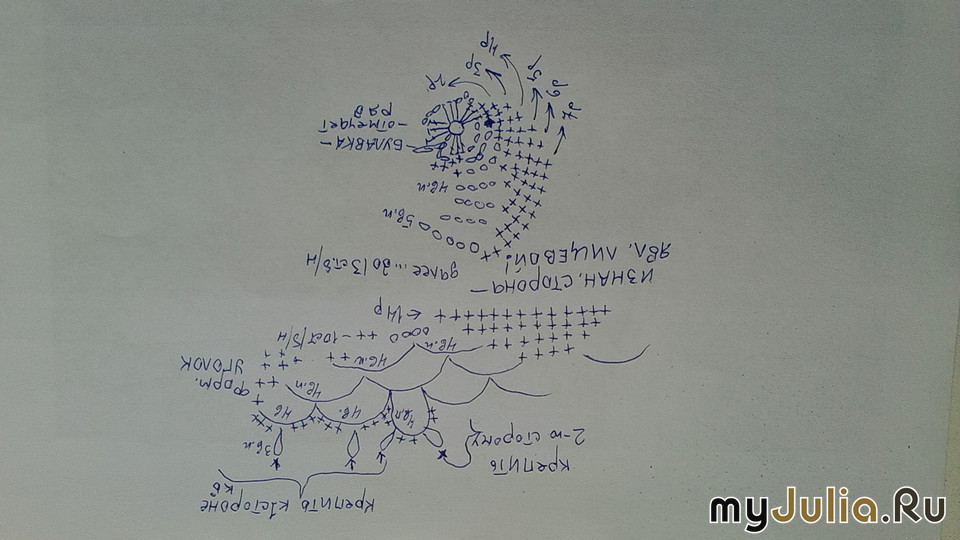 крепить к 1 стороне
крепить
2-ю сторону
3в.п
4в.
4в
4в.п
форм.
уголок
4в.п
4в.п
4в.п
-10ст/б/н
14р
изнан. сторона –
явл. лицевой!
далее... до 13ст.б/н
5в.п
4в.п
булавка –
– отмечает
ряд
2р
3р
4р
5р
6р
7р
myJulia.Ru